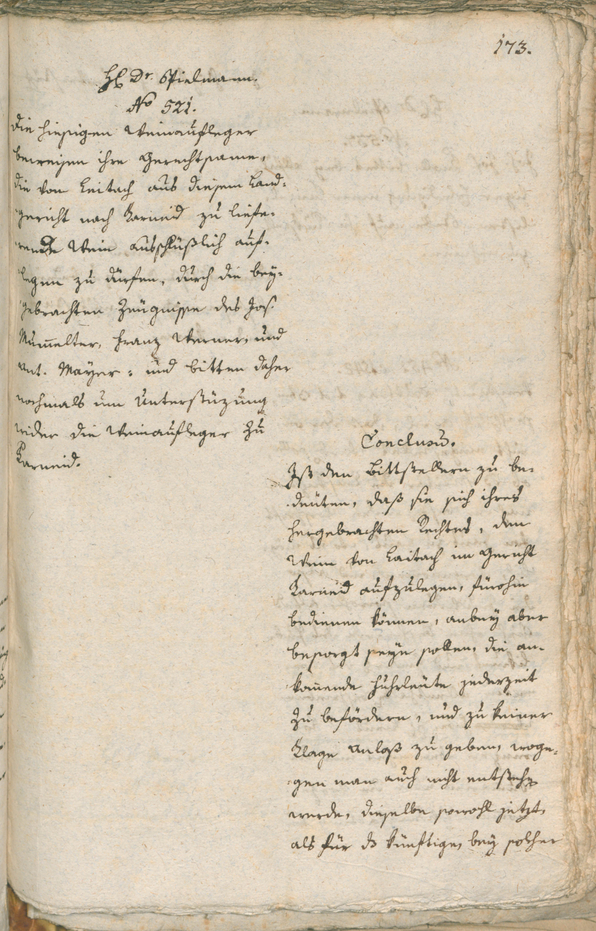 173.
H. Dr. Spielmann.
No 521.
Die hiesigen Weinaufleger
beweisen ihre Gerechtsame,
die von Leitach aus diesem Land-
gericht nach Karneid zu liefe-
rende Wein ausschlüßlich auf-
legen zu dürfen, durch die bey-
gebrachten Zeugnisse des Jos.
Mumelter, Franz Werner, und
Ant. Mayer: und bitten daher
nochmals um Unterstüzung
wider die Weinaufleger zu
Karneid.
Conclusum.
Ist den Bittstellern zu be-
deuten, daß sie sich ihres
hergebrachten Rechtes, den
Wein von Laitach im Gericht
Karneid aufzulegen, fürohin
bedienen können, anbey aber
besorgt seyn sollen, die an-
komende Fuhrleute jederzeit
zu befördern, und zu keiner
Klage Anlaß zu geben, woge-
gen man auch nicht entstehen
werde, dieselbe sowohl jetzt,
als für das künftige, bey solcher